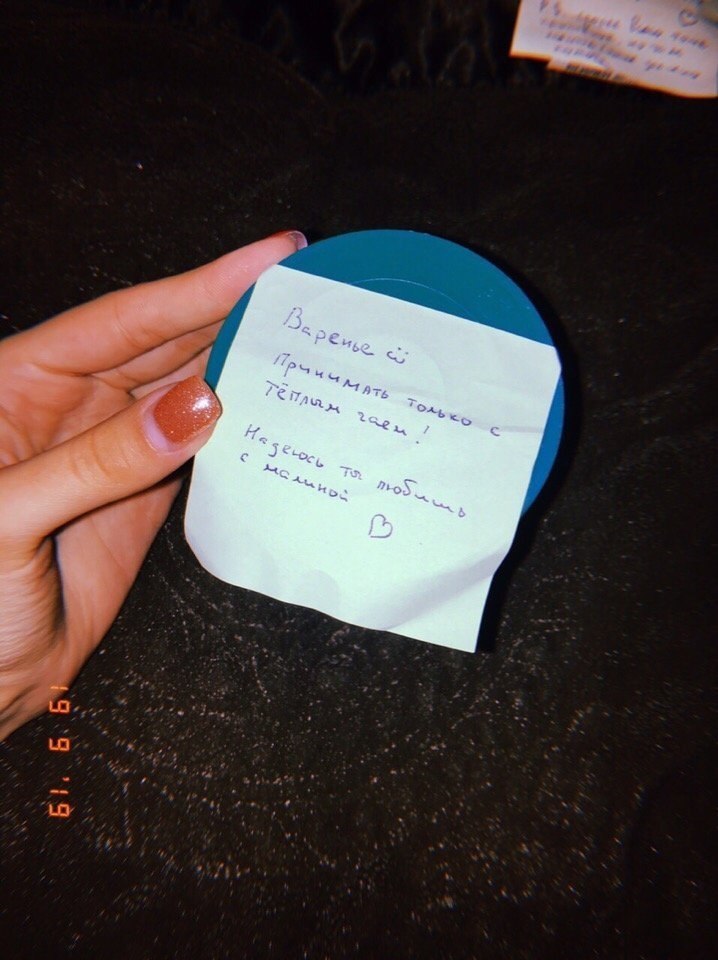 Варенье
Принимать только с
тёплым чаем!
Надеюсь ты любишь
с малиной
19 9 '19